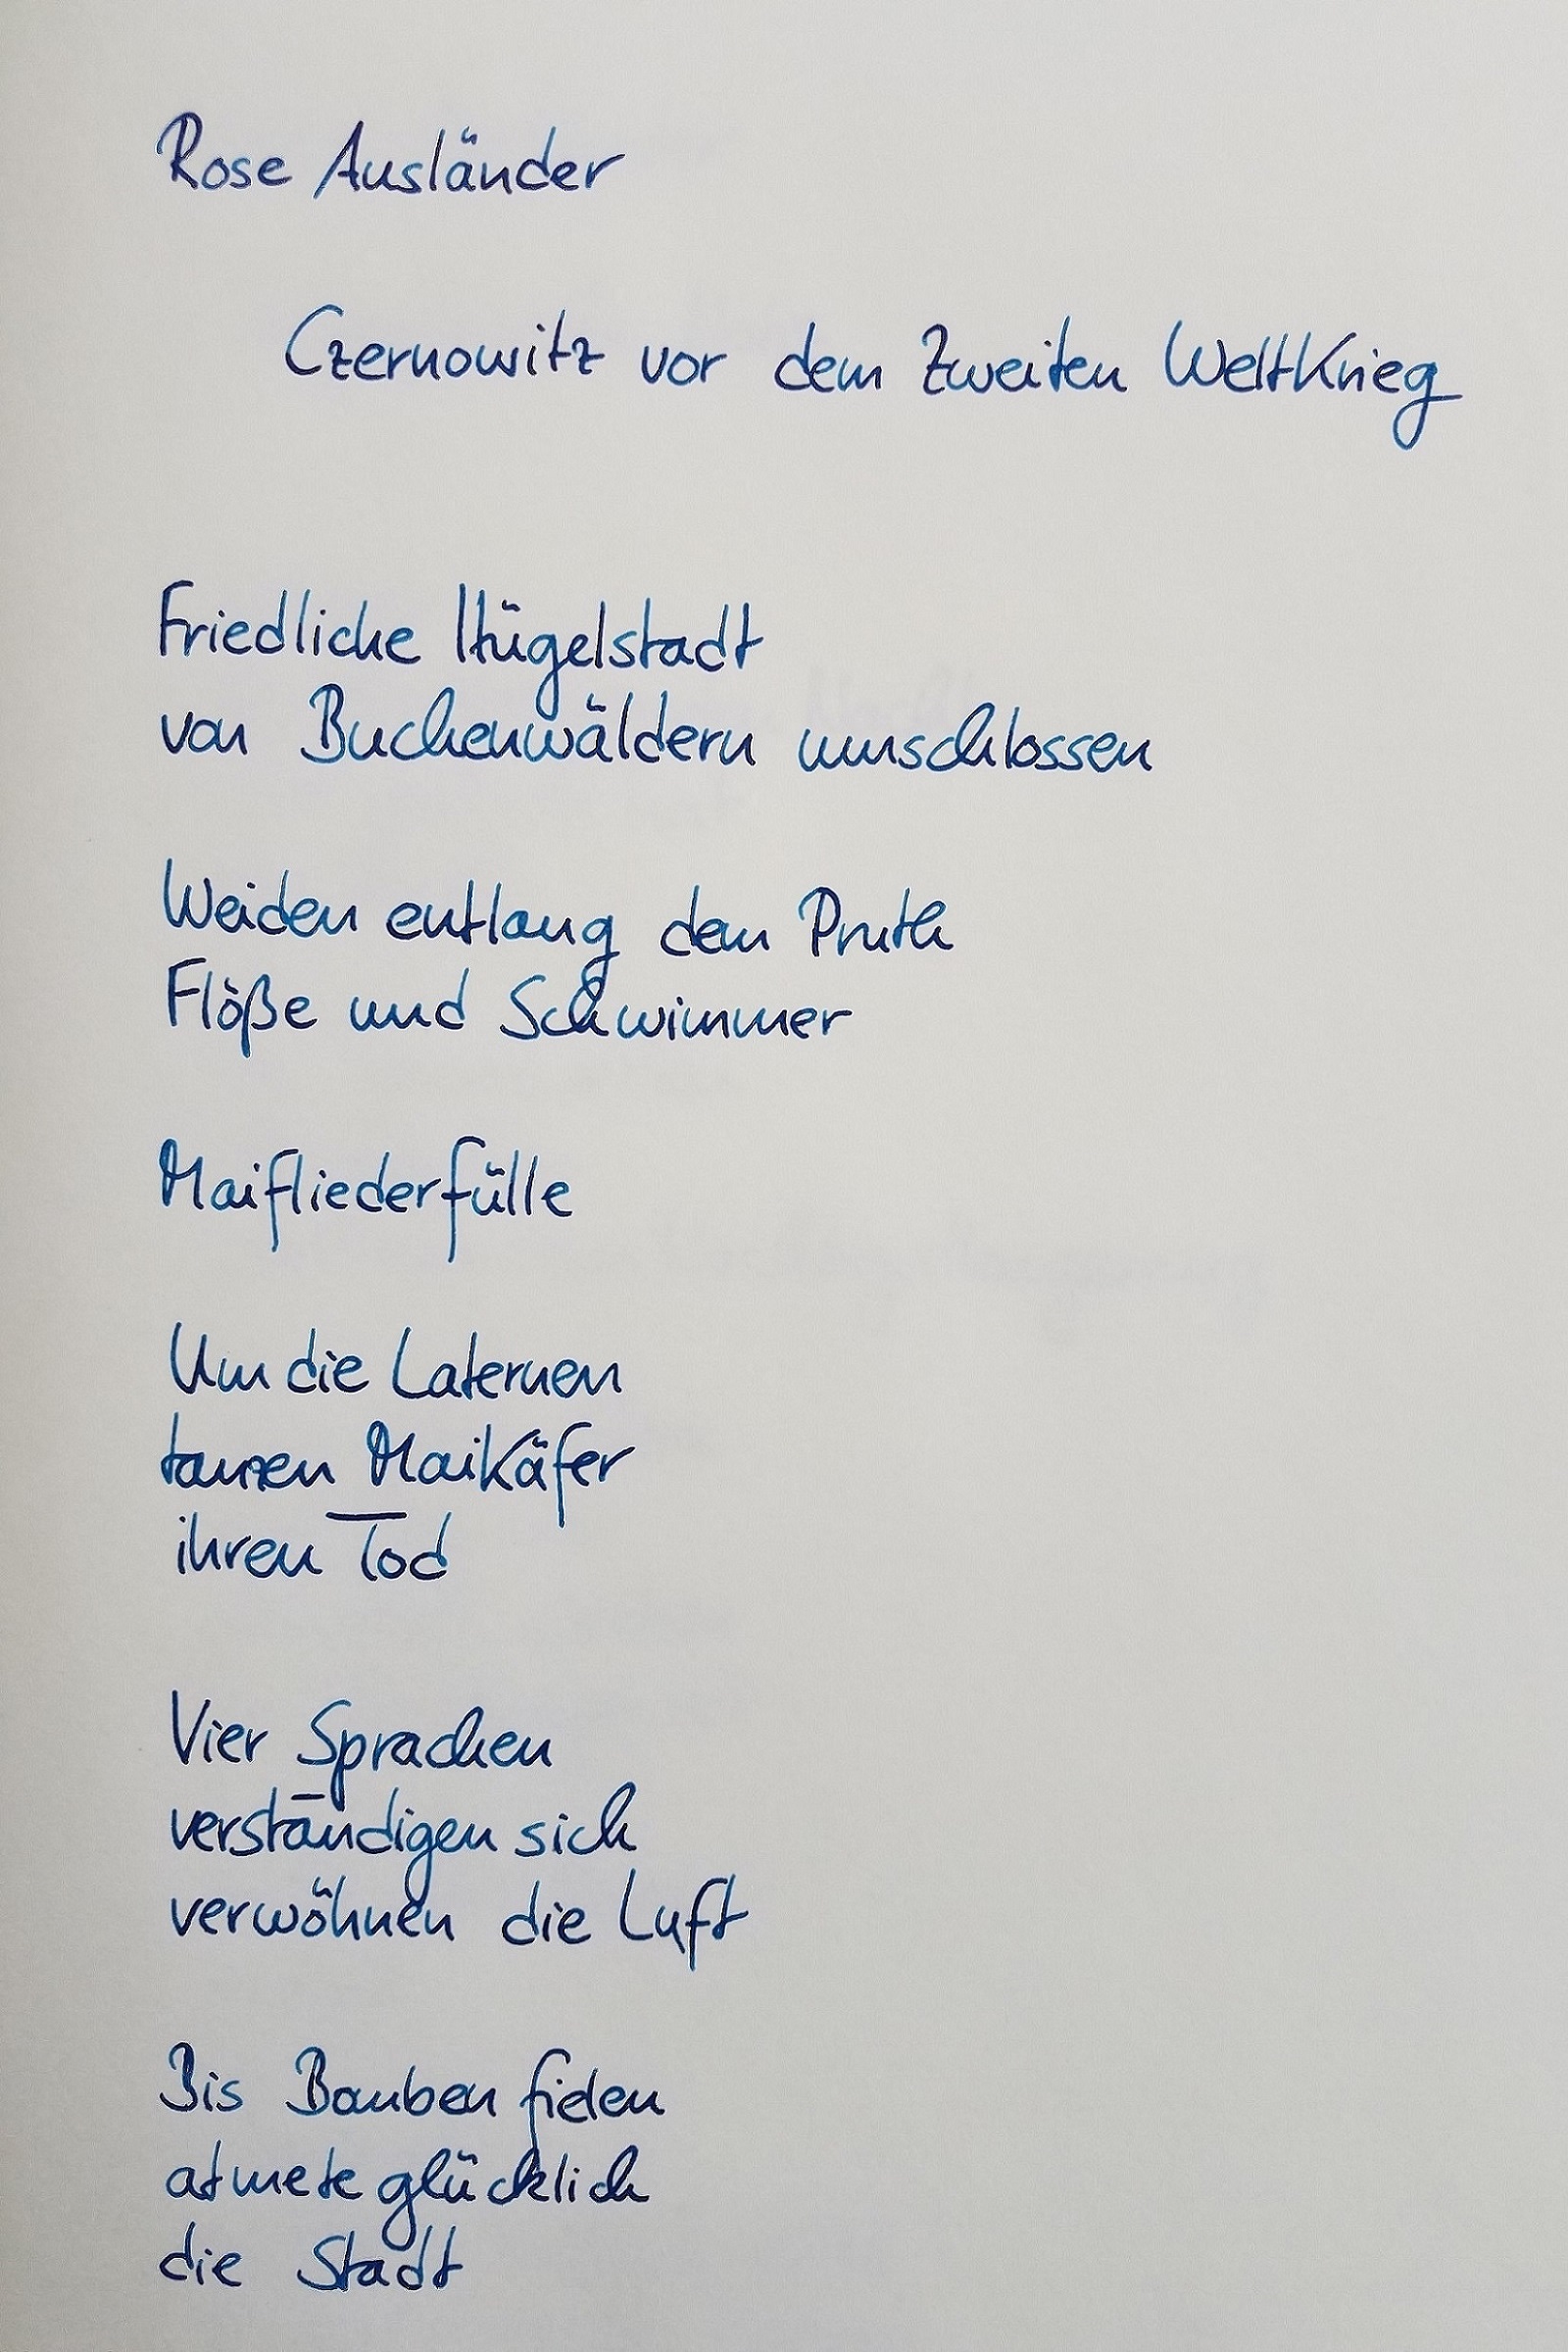 Rose Ausländer
Czernowitz vor dem Zweiten Weltkrieg
Friedliche Hügelstadt
von Buchenwäldern umschlossen
Weiden entlang dem Pruth
Flöße und Schwimmer
Maifliederfülle
Um die Laternen
tanzen Maikäfer
ihren Tod
Vier Sprachen
verständigen sich
verwöhnen die Luft
Bis Bomben fielen
atmete glücklich
die Stadt